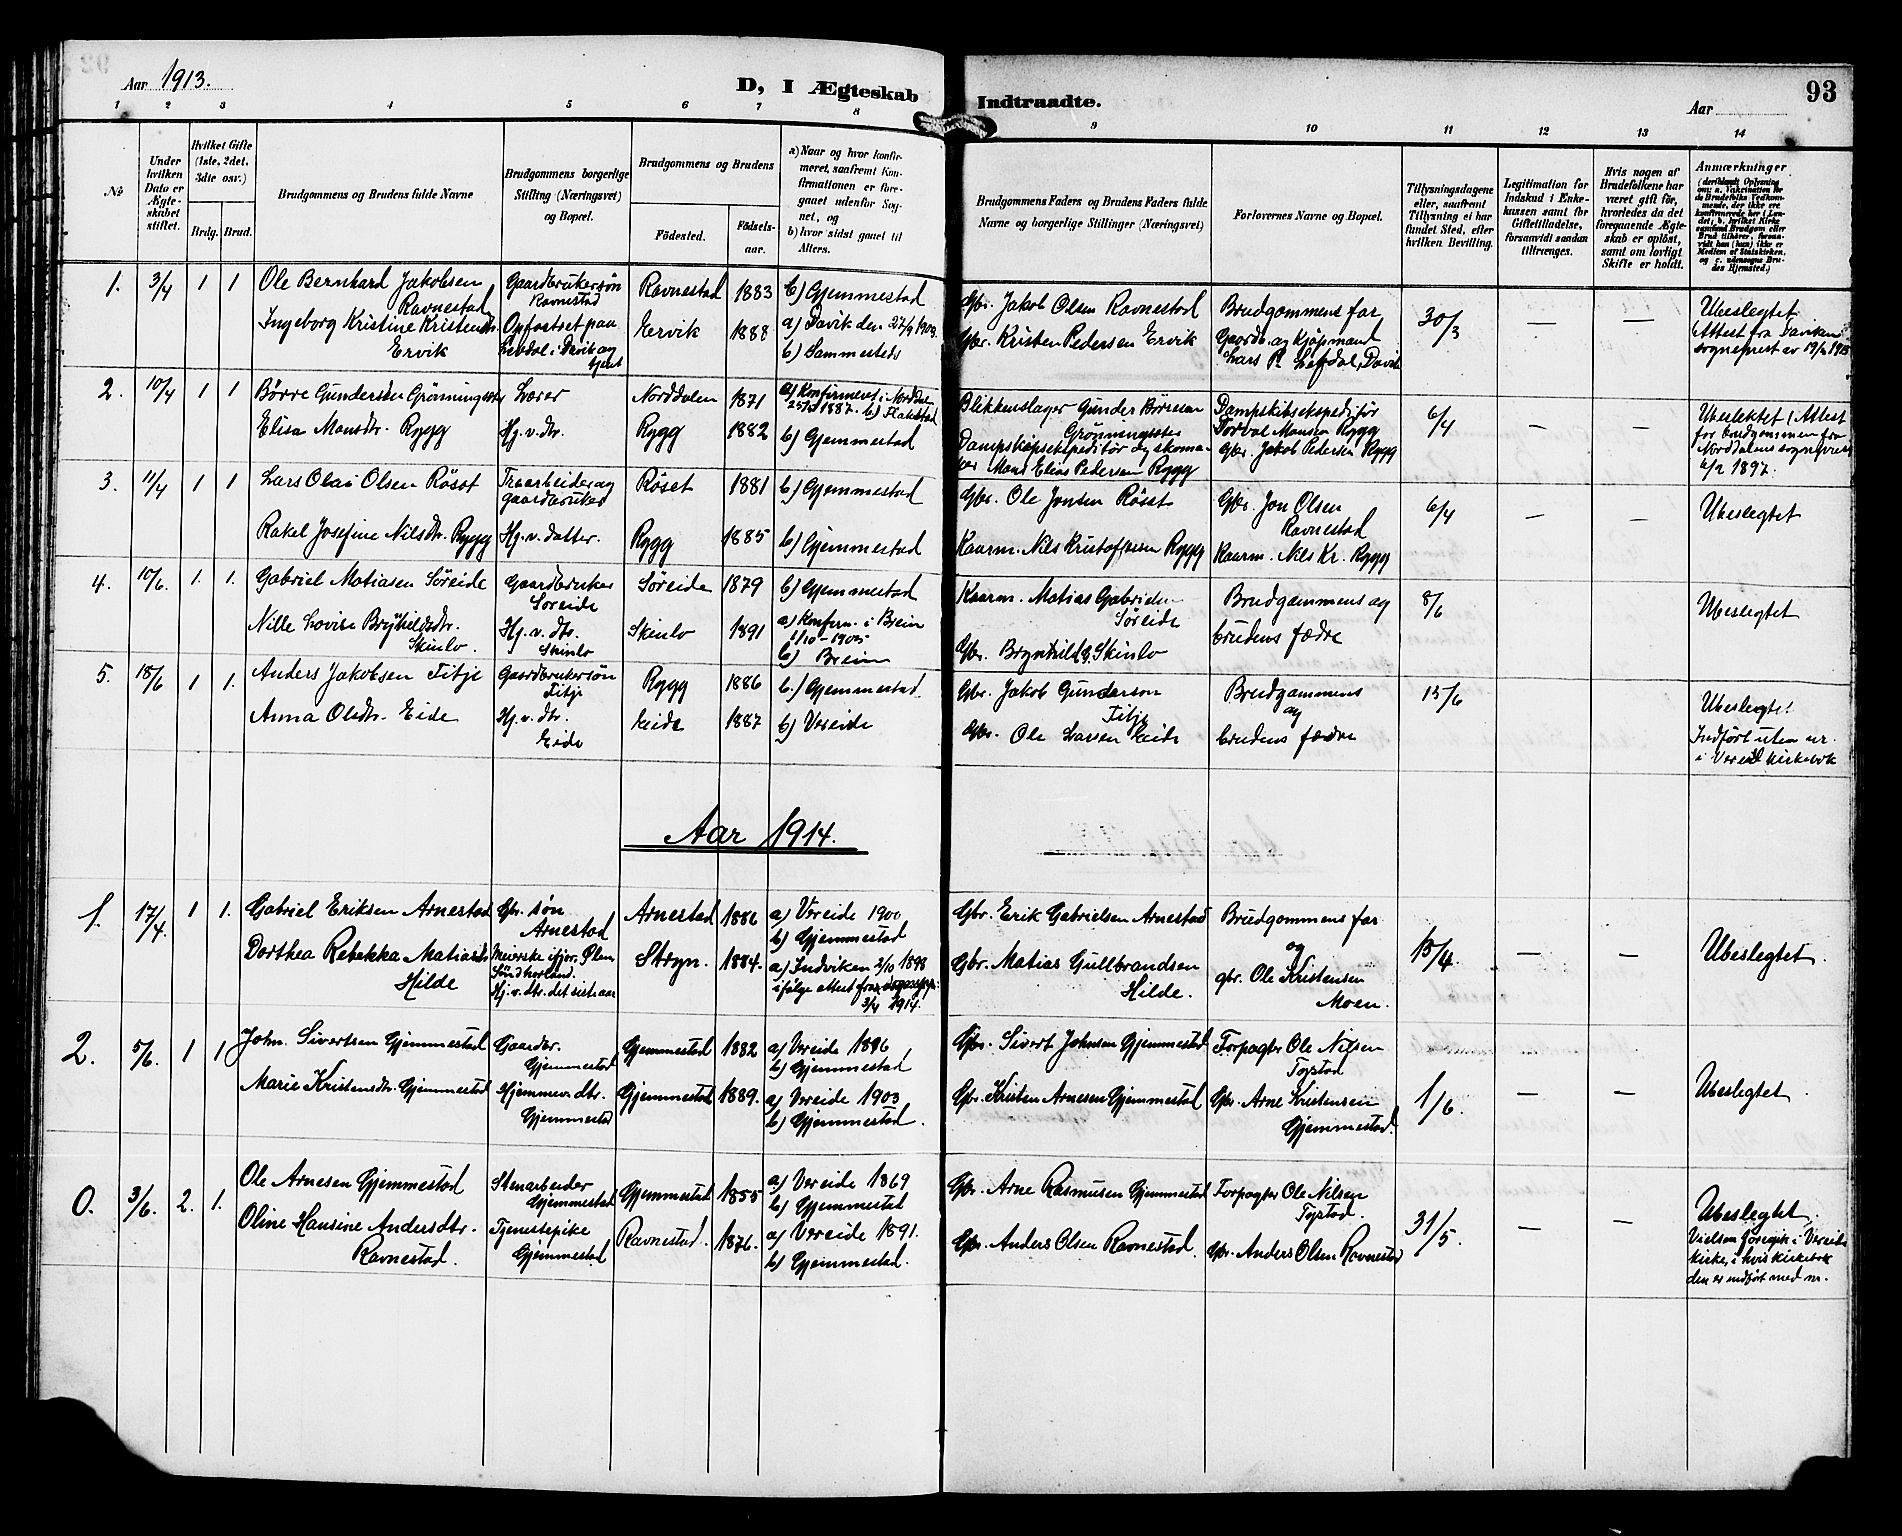 Aar 1913.
D, I Ægteskab Indtraadte.
Aar
93
1 2 3 4 5 6 7 8 9 10 11 12 13 14
No
Under hvilken Dato er Ægteskabet stiftet.
Hvilket Gifte (1ste, 2det, 3die osv.)
Brdg. Brud.
Brudgommens og Brudens fulde Navne
Brudgommens borgerlige Stilling (Næringsvei) og Bopæl.
Brudgommens og Brudens
Fødested.
Fødselsaar.
a) Naar og hvor konfirmeret, saafremt Konfirmationen er foregaaet udenfor Sognet, og
b) hvor sidst gaaet til Alters.
Brudgommens Faders og Brudens Faders fulde Navne og borgerlige Stillinger (Næringsvei)
Forlovernes Navne og Bopæl.
Tillysningsdagene eller, saafremt Tillysning ei har fundet Sted, efter hvilken Bevilling.
Legitimation for Indskud i Enkekassen samt for Giftetilladelse, forsaavidt saadan tiltrænges.
Hvis nogen af Brudefolkene har været gift før, hvorledes da det foregaaende Ægteskab er opløst, samt om lovligt Skifte er holdt.
Anmærkninger
1. 3/4 1 1 Ole Bernhard Jakobsen Ravnestad
Gaardbrukersøn Ravnestad
Ravnestad 1883 b) Gjemmestad
Gbr. Jakob Olsen Ravnestad
Brudgommens far
30/3 — —
Ubeslegtet
Ingeborg Kristine Kristensdtr. Ervik
Opfostret paa
Ervik 1888 a) Davik den 27/9 1903
b) Sammesteds
Gbr. Kristen Pedersen Ervik
Gaardb. og Kjøpmand Lars P. Lefdal, Davik
2. 10/4 1 1 Børre Gundersen Grønningsæter
Lærer
Norddalen 1871 a) Konfirmeret i Norddalen
Blikkenslager Gunder Børresen Grønningsæter
Dampskibsekspeditør Torval Monsen Rygg
6/4 — —
Ubeslektet
Elisa Monsdtr. Rygg
Hj. v. dtr.
Rygg 1882 b) Gjemmestad
Dampskipsekspeditør og skomaker Mons Elias Pedersen Rygg
Gbr. Jakob Pedersen Rygg
3. 11/4 1 1 Lars Olai Olsen Røset
Træarbeider og gaardbruker
Røset 1881 b) Gjemmestad
Gbr. Ole Jonsen Røset
Gbr. Jon Olsen Ravnestad
6/4 — —
Ubeslegtet
Rakel Josefine Nilsdtr. Rygg
Hj. v. datter.
Rygg 1885 b) Gjemmestad
Kaarm. Nils Kristoffersen Rygg
Kaarm. Nils Kr. Rygg
4. 10/6. 1. 1. Gabriel Matiasen Søreide
Gaardbruker Søreide
Søreide 1879 b) Gjemmestad
Kaarm. Matias Gabrielsen Søreide
Brudgommens og brudens fædre
8/6
Ubeslegtet
Nille Lovise Brynhildsdtr. Skinlo.
Hj. v. dtr. Skinlo
Skinlo 1891 a) Konfirm. i Breim 1/10-1905
b) Breim
Gbr. Brynhild Skinlo
5. 18/6 1 1. Anders Jakobsen Titje
Gaardbrukersøn Titje
Rygg 1886 b.) Gjemmestad.
Gbr. Jakob Gunderson Titje
Brudgommens og brudens fædre
15/6
Ubeslegtet
Anna Olsdtr. Eide
Hj. v. dtr. Eide
Eide 1887 b) Vereide
Gbr. Ole Larsen Eide
Indført uten nr. i Vereid kirkebok
Aar 1914.
1. 17/4. 1 1. Gabriel Eriksen Arnestad
Gbr. søn Arnestad
Arnestad 1886 a) Vereide 1900
b) Gjemmestad
Gbr. Erik Gabrielsen Arnestad
Brudgommens far og
15/4. — —
Ubeslegtet.
Dorthea Rebekka Matiasdtr. Hilde
Hj. v. dtr. det siste aar
Stryn. 1884. a) Indviken 2/10 1898
ifølge attest fra sogneprest 3/4 1914.
Gbr. Matias Gullbrandsen Hilde.
gbr. Ole Kristensen Moen.
2. 5/6. 1 1 John Sivertsen Gjemmestad
Gaardbr. Gjemmestad
Gjemmestad 1882 a) Vereide 1896
b) Gjemmestad
Gbr. Sivert Johnsen Gjemmestad
Forpagter Ole Nilsen Tystad
1/6. — —
Ubeslegtet
Marie Kristensdtr. Gjemmestad
Hjemmev. dtr. Gjemmestad
Gjemmestad 1889. a) Vereide 1903
b) Gjemmestad.
Gbr. Kristen Arnesen Gjemmestad
Gbr. Arne Kristensen Gjemmestad.
0. 3/6. 2. 1. Ole Arnesen Gjemmestad
Stenarbeider Gjemmestad
Gjemmestad 1855 a) Vereide 1869
b) Gjemmestad
Gbr. Arne Rasmusen Gjemmestad
Forpagter Ole Nilsen Tystad.
31/5. — —
Ubeslegtet.
Oline Hansine Andersdtr. Ravnestad.
Tjenestepike Gjemmestad
Ravnestad. 1876. a) Vereide 1891.
b) Gjemmestad.
Gbr. Anders Olsen Ravnestad.
Gbr. Anders Olsen Ravnestad
Vielsen foregik i Vereide kirke, i hvis kirkebok den er indført med nr.